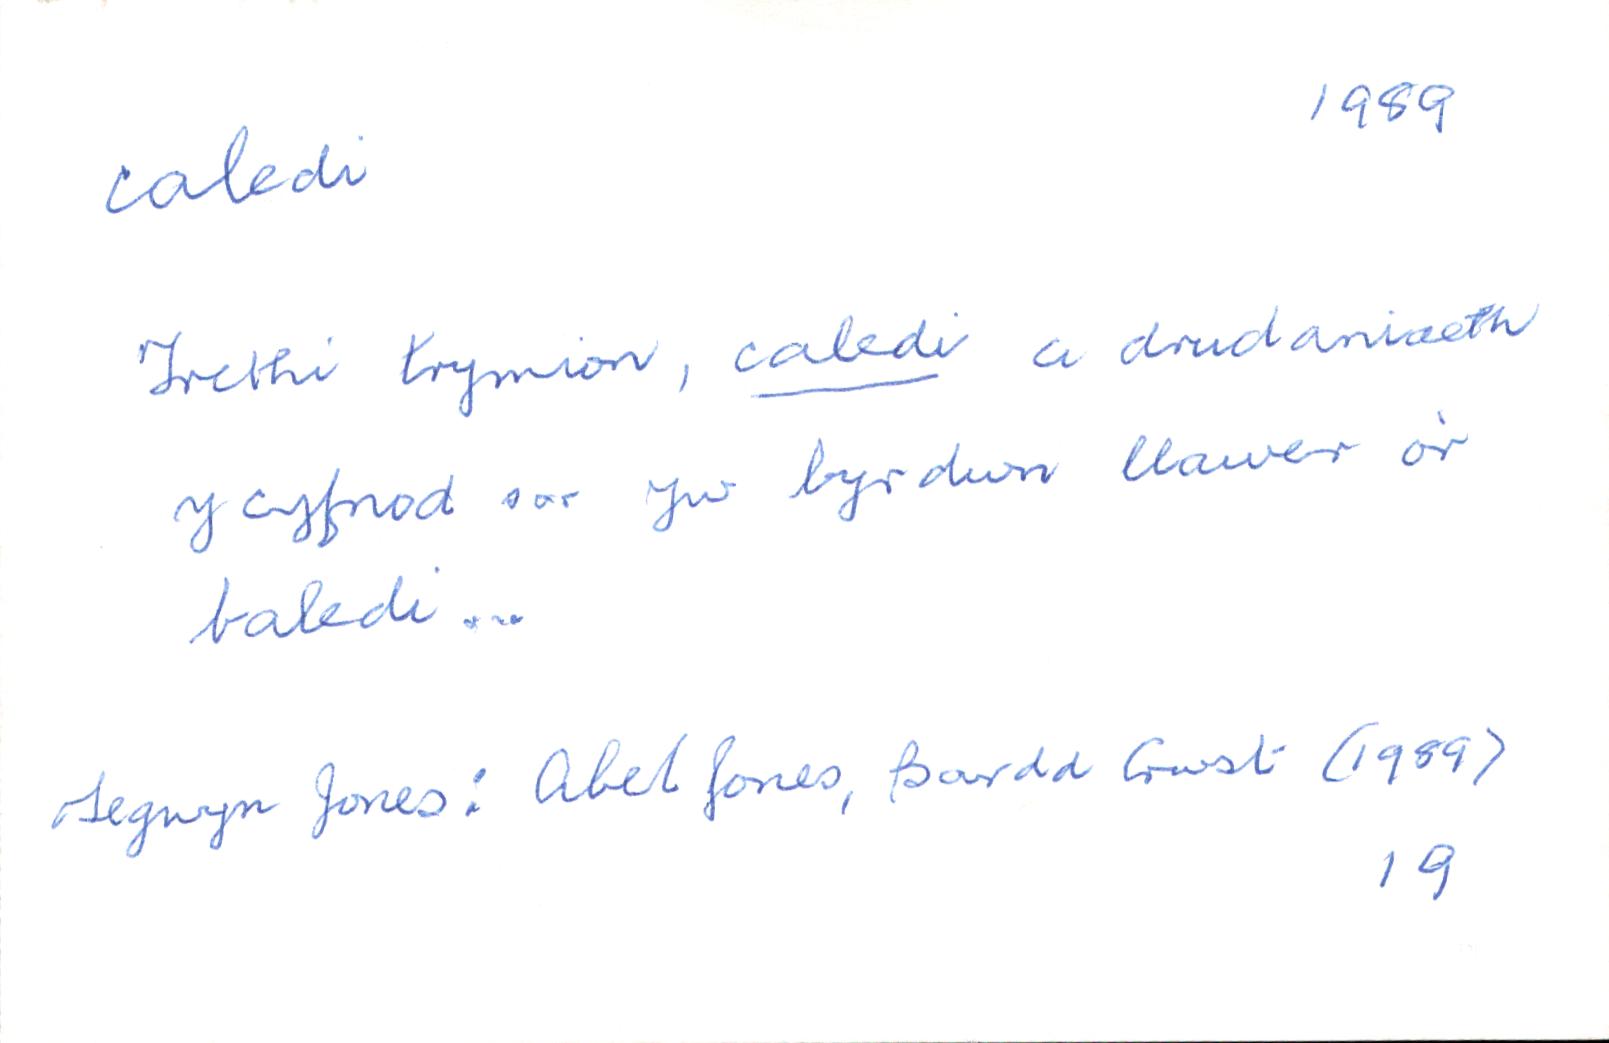 1989
caledi
Trethi trymion, caledi a drudaniaeth
y cyfnod ... yw byrdwn llawer o'r
baledi ...
Tegwyn Jones: Abel Jones, Bardd Crwst (1989)
19